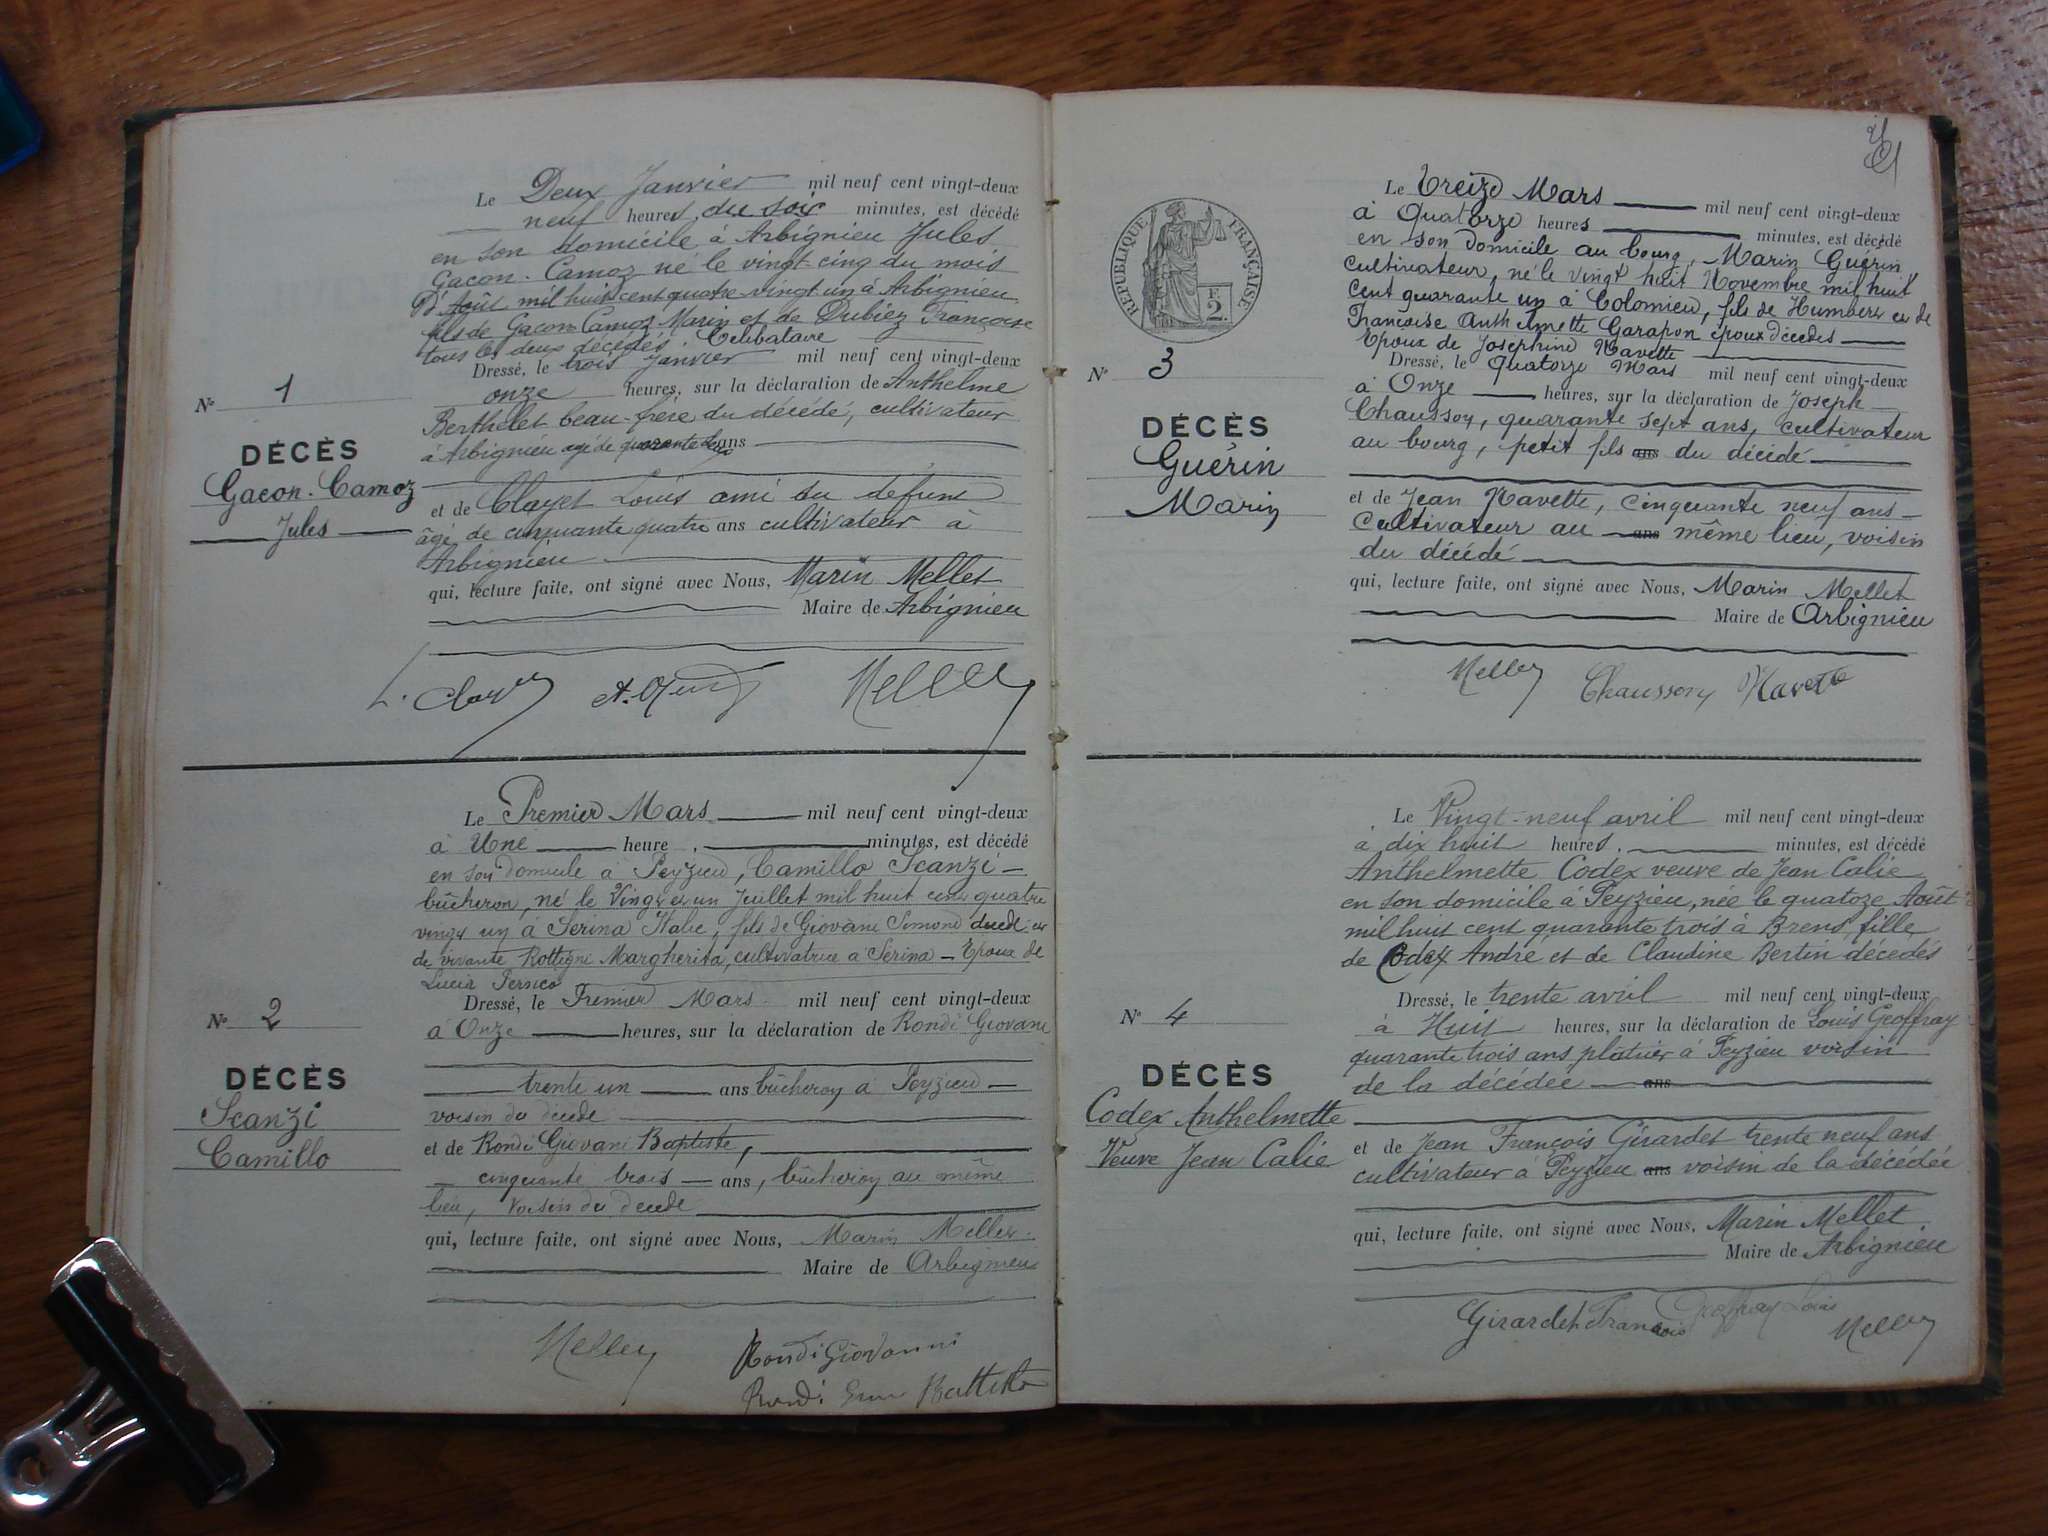 Le Deux Janvier mil neuf cent vingt-deux
neuf heures, du soir minutes, est décédé
en son domicile à Arbignieu Jules
Gacon-Camoz né le vingt-cinq du mois
D'Août mil huit cent quatre-vingt un à Arbignieu
fils de Gacon-Camoz Marin et de Dubiez Françoise
tous les deux décédés. Célibataire
Dressé, le trois Janvier mil neuf cent vingt-deux
onze heures, sur la déclaration de Anthelme
Berthelet beau-frère du décédé, cultivateur
à Arbignieu agé de quarante ans
et de Clayet Louis ami du défunt
âgé de cinquante quatre ans cultivateur à
Arbignieu
qui, lecture faite, ont signé avec Nous, Marin Mellet
Maire de Arbignieu
Nº 1
DÉCÈS
Gacon-Camoz
Jules
Mellet
Le Premier Mars mil neuf cent vingt-deux
à Une heure, minutes, est décédé
en son domicile à Peyzieu, Camillo Scanzi
bûcheron, né le Vingt et un Juillet mil huit cent quatre
vingt un à Serina Italie, fils de Giovani Simond décédé et
de vivante Rottigni Margherita, cultivatrice à Serina - Epoux de
Lucia Persico
Dressé, le Premier Mars mil neuf cent vingt-deux
à Onze heures, sur la déclaration de Rondi Giovani
trente un ans bûcheron à Peyzieu
voisin du décédé
et de Rondi Giovani Baptiste,
cinquante trois ans, bûcheron au même
lieu, voisin du décédé
qui, lecture faite, ont signé avec Nous, Marin Mellet
Maire de Arbignieu
Nº 2
DÉCÈS
Scanzi
Camillo
Mellet
Rondi Giovanni
Rondi Battista
RÉPUBLIQUE FRANÇAISE
2
Le Treize Mars mil neuf cent vingt-deux
à Quatorze heures minutes, est décédé
en son domicile au bourg, Marin Guérin
cultivateur, né le vingt huit Novembre mil huit
cent quarante un à Colomieu, fils de Humbert et de
Françoise Anthelmette Garapon époux décédés
Epoux de Josephine Navette
Dressé, le Quatorze Mars mil neuf cent vingt-deux
à Onze heures, sur la déclaration de Joseph
Chausson, quarante sept ans, cultivateur
au bourg, petit fils ans du décédé
et de Jean Navette, cinquante neuf ans
cultivateur au ans même lieu, voisin
du décédé
qui, lecture faite, ont signé avec Nous, Marin Mellet
Maire de Arbignieu
Nº 3
DÉCÈS
Guérin
Marin
Mellet Chausson Navette
Le Vingt-neuf avril mil neuf cent vingt-deux
à dix huit heures, minutes, est décédé
Anthelmette Codex veuve de Jean Calie
en son domicile à Peyzieu, née le quatoze Août
mil huit cent quarante trois à Brens, fille
de Codex André et de Claudine Bertin décédés
Dressé, le trente avril mil neuf cent vingt-deux
à Huit heures, sur la déclaration de Louis Geoffray
quarante trois ans platrier à Peyzieu voisin
de la décédée ans
et de Jean François Girardet trente neuf ans
cultivateur à Peyzieu ans voisin de la décédée
qui, lecture faite, ont signé avec Nous, Marin Mellet
Maire de Arbignieu
Nº 4
DÉCÈS
Codex Anthelmette
Veuve Jean Calie
Girardet François Geoffray Louis
Mellet